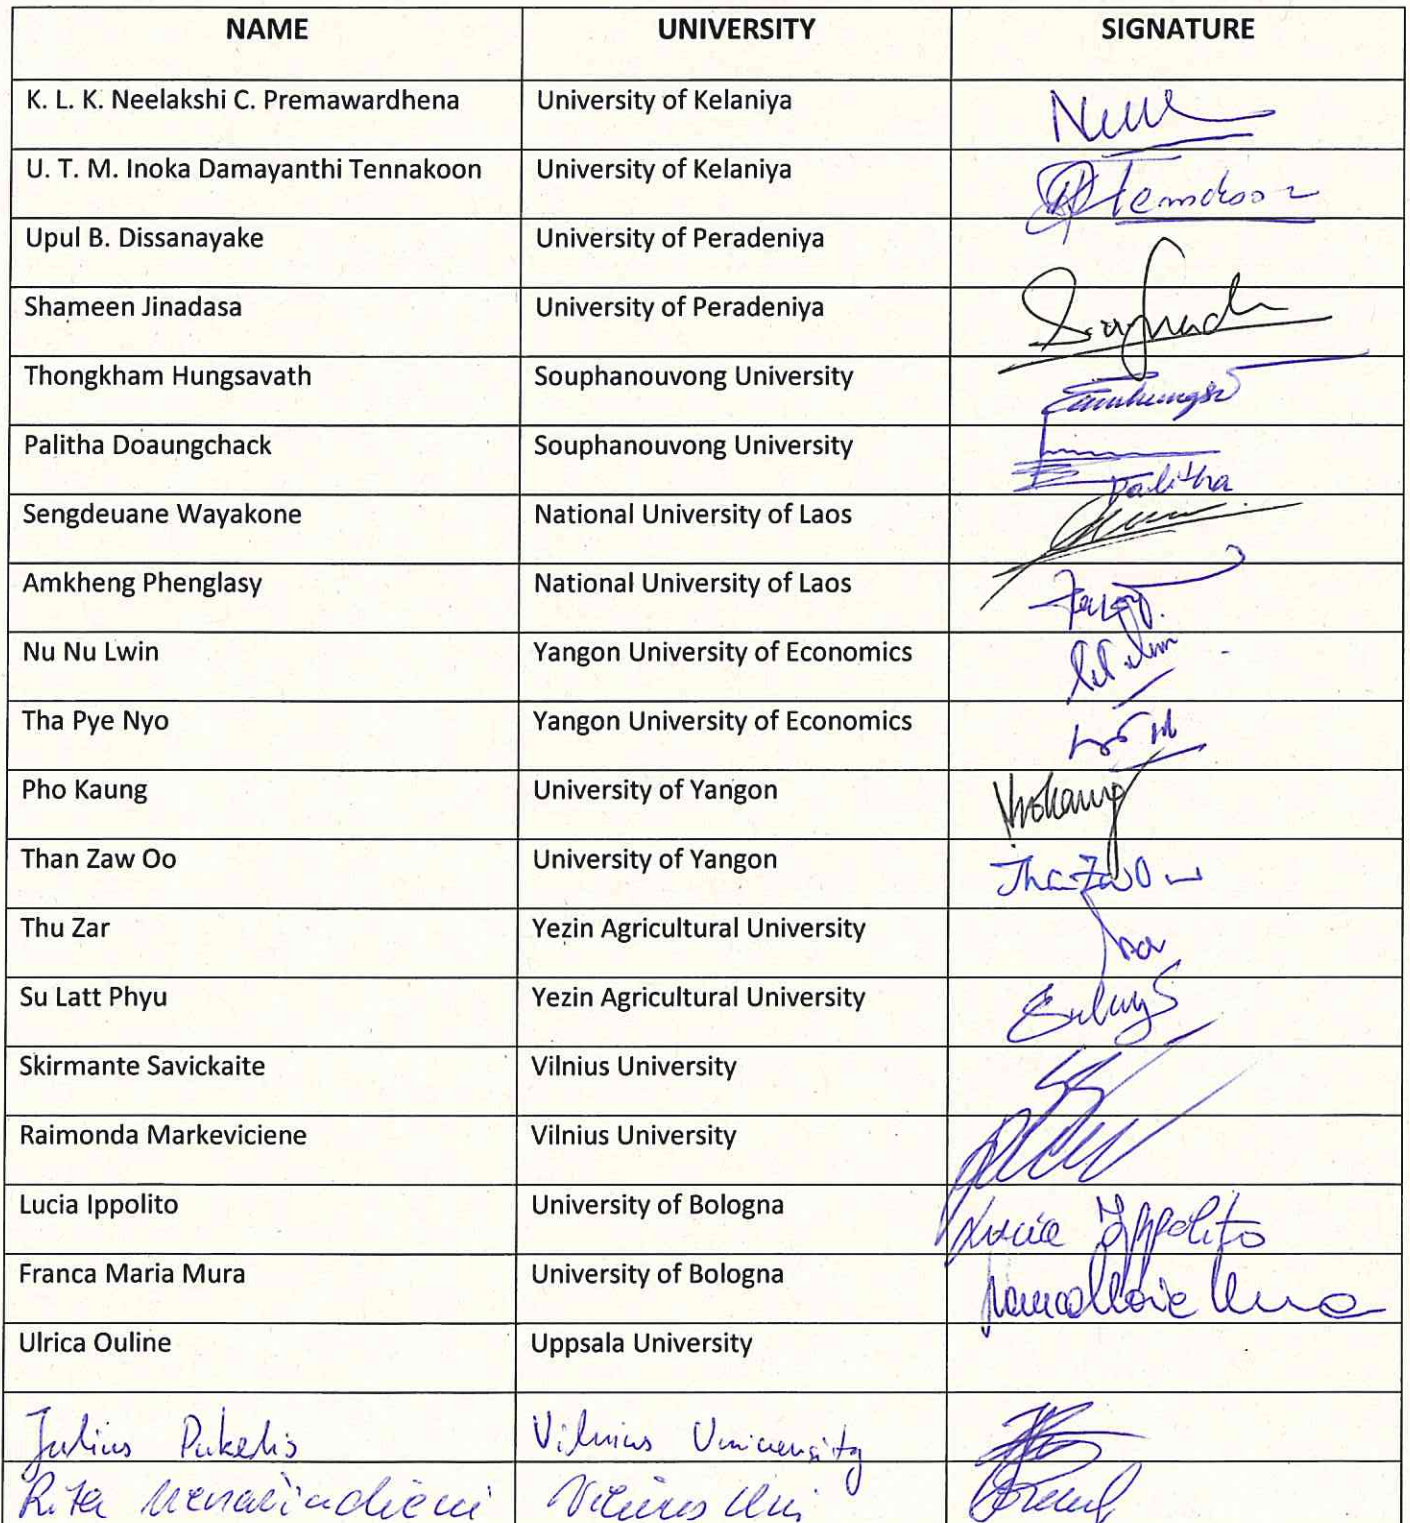 NAME UNIVERSITY SIGNATURE
K. L. K. Neelakshi C. Premawardhena University of Kelaniya
U. T. M. Inoka Damayanthi Tennakoon University of Kelaniya
Upul B. Dissanayake University of Peradeniya
Shameen Jinadasa University of Peradeniya
Thongkham Hungsavath Souphanouvong University
Palitha Doaungchack Souphanouvong University Palitha
Sengdeuane Wayakone National University of Laos
Amkheng Phenglasy National University of Laos
Nu Nu Lwin Yangon University of Economics
Tha Pye Nyo Yangon University of Economics
Pho Kaung University of Yangon
Than Zaw Oo University of Yangon
Thu Zar Yezin Agricultural University
Su Latt Phyu Yezin Agricultural University
Skirmante Savickaite Vilnius University
Raimonda Markeviciene Vilnius University
Lucia Ippolito University of Bologna Lucia Ippolito
Franca Maria Mura University of Bologna
Ulrica Ouline Uppsala University
Julius Pukelis Vilnius University
Rita Vilnius Uni